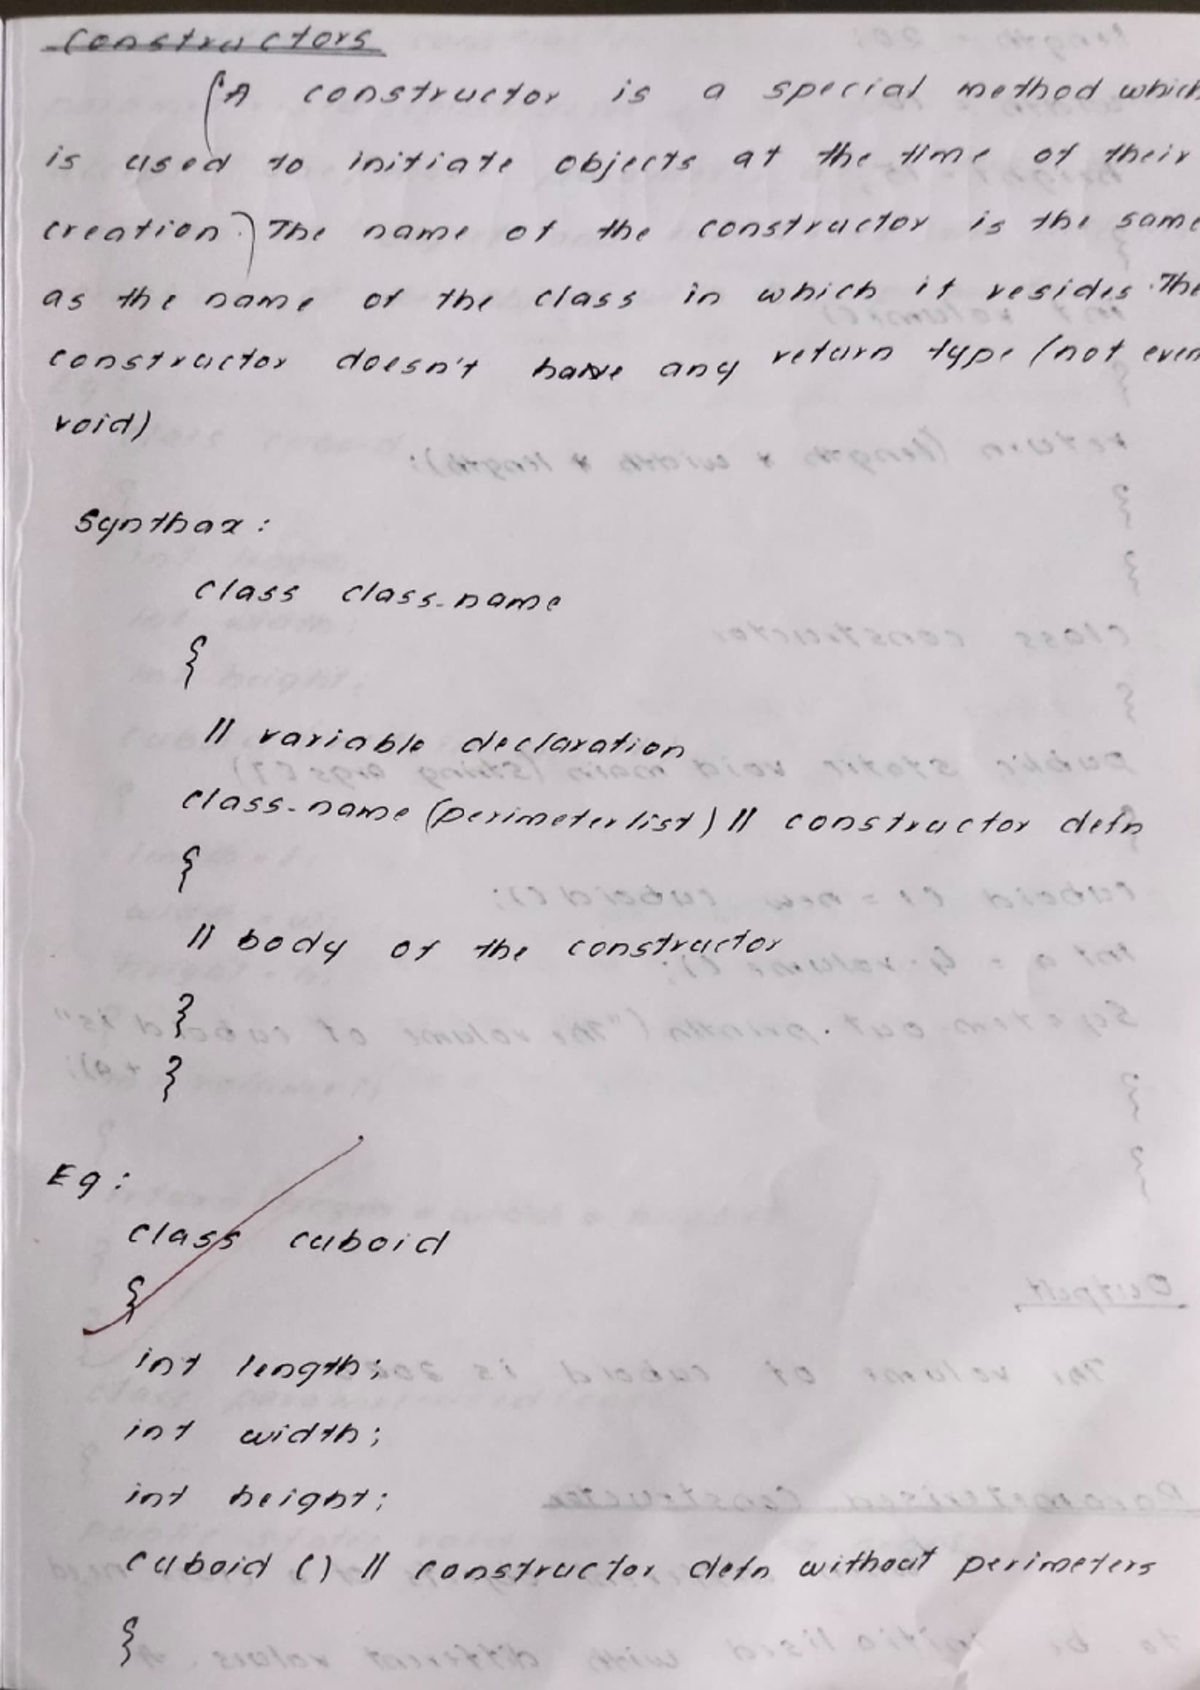 Constructors
(A constructor is a special method which
is used to initiate objects at the time of their
creation.) The name of the constructor is the same
as the name of the class in which it resides. The
constructor doesn't have any return type (not even
void)
Synthax:
class class-name
{
// variable declaration
class-name (perimeter list) // constructor defn
{
// body of the constructor
}
}
Eg:
class cuboid
{
int length;
int width;
int height;
cuboid () // constructor defn without perimeters
{